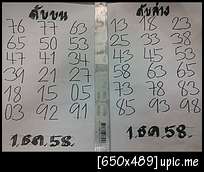 ดับบน
76 77 63
65 50 53
47 41 34
39 21 27
18 15 05
03 92 91
1.ธค.58.
ดับล่าง
13 18 23
25 33 38
43 45 53
58 63 65
73 78 83
85 93 98
1.ธค.58.
[650x489]upic.me